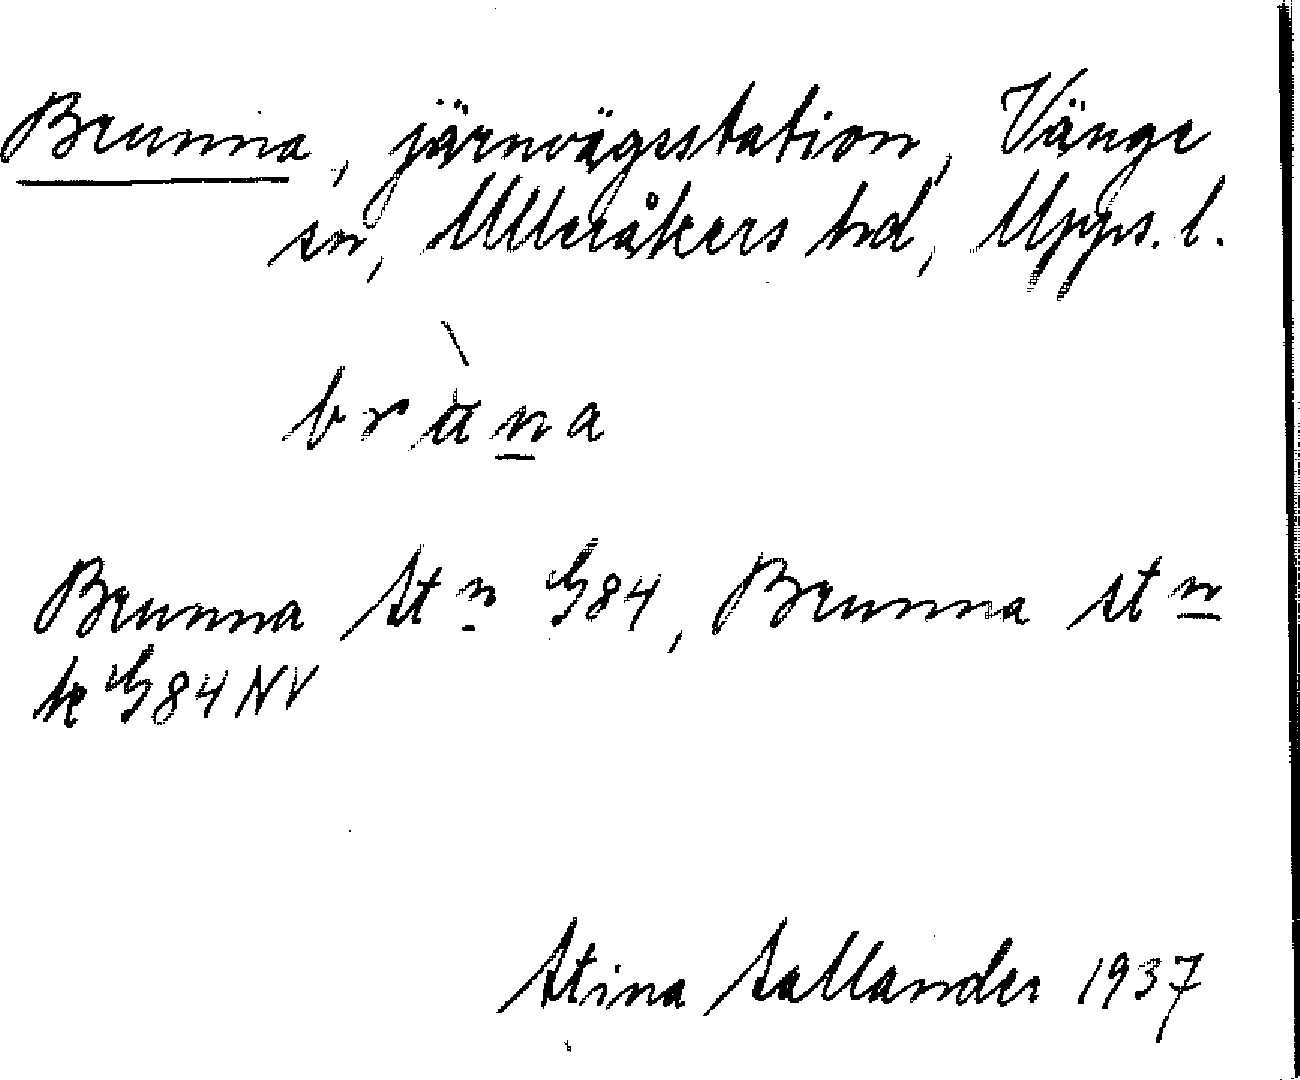 Brunna, järnvägsstation, Vänge
sn, Ulleråkers hd, Upps. l.
brùna
Brunna Stn G84, Brunna stn
k G84NV
Stina Sallander 1937